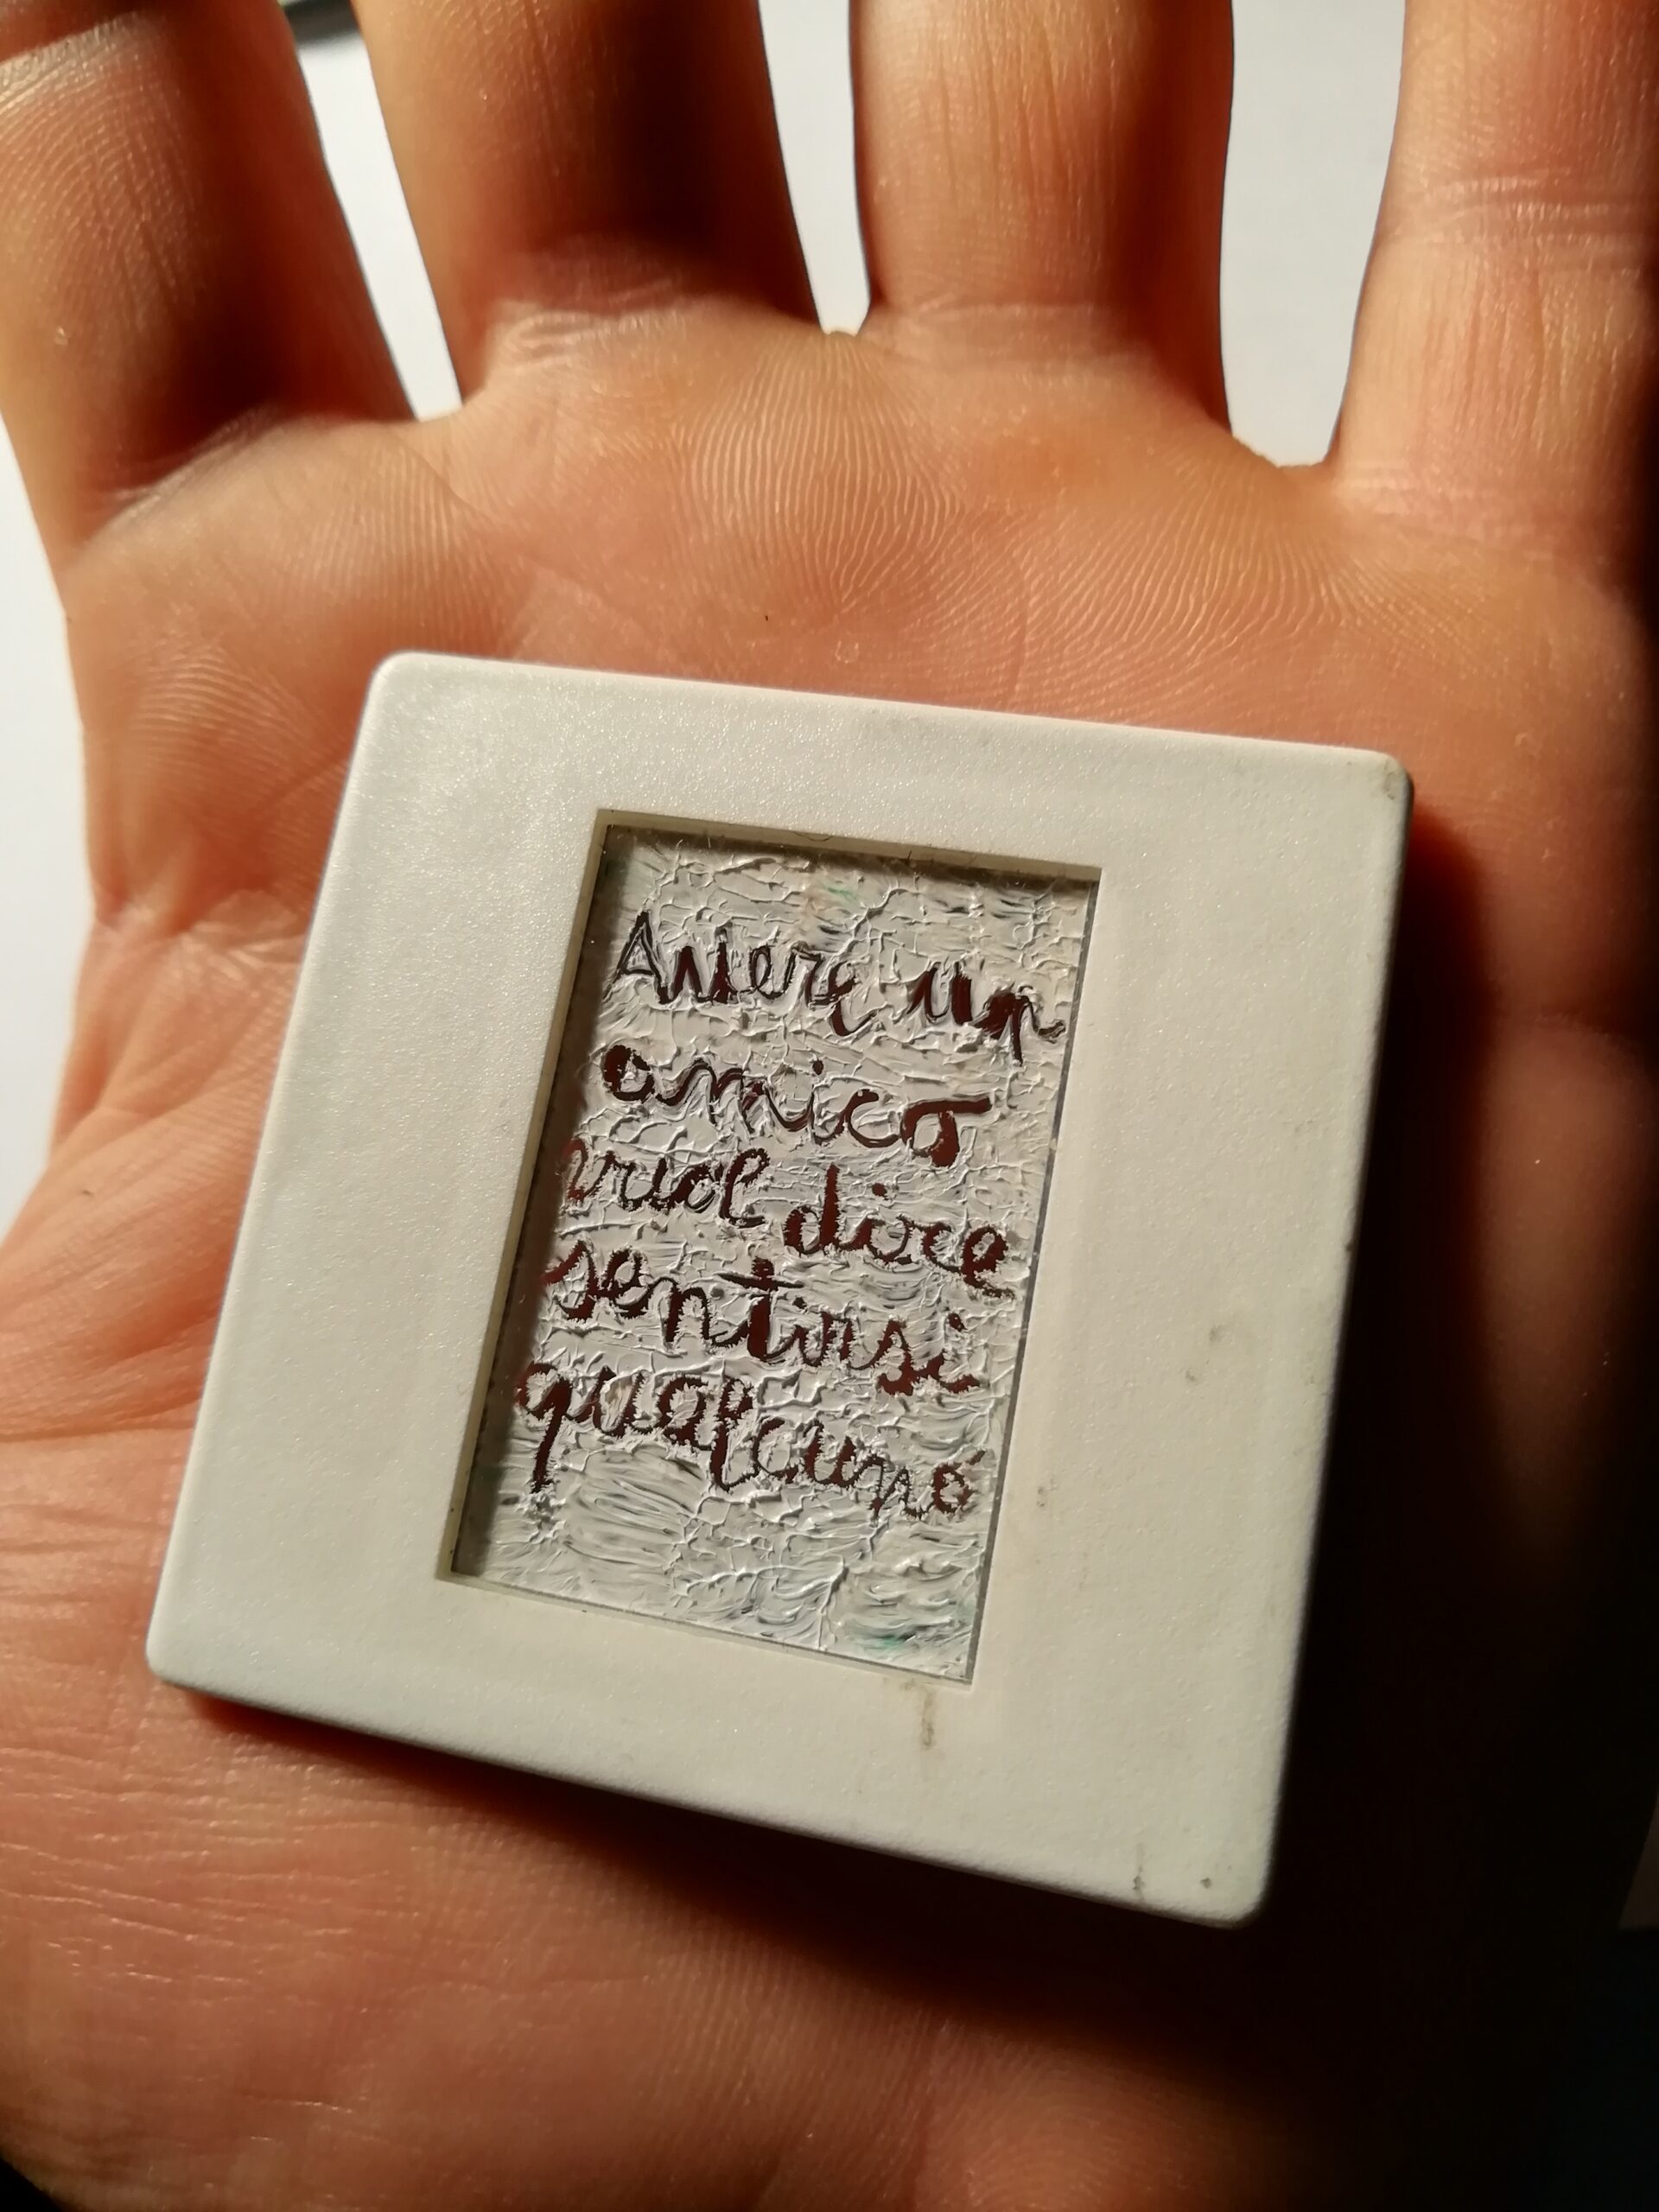 Avere un
amico
vuol dire
sentirsi
qualcuno